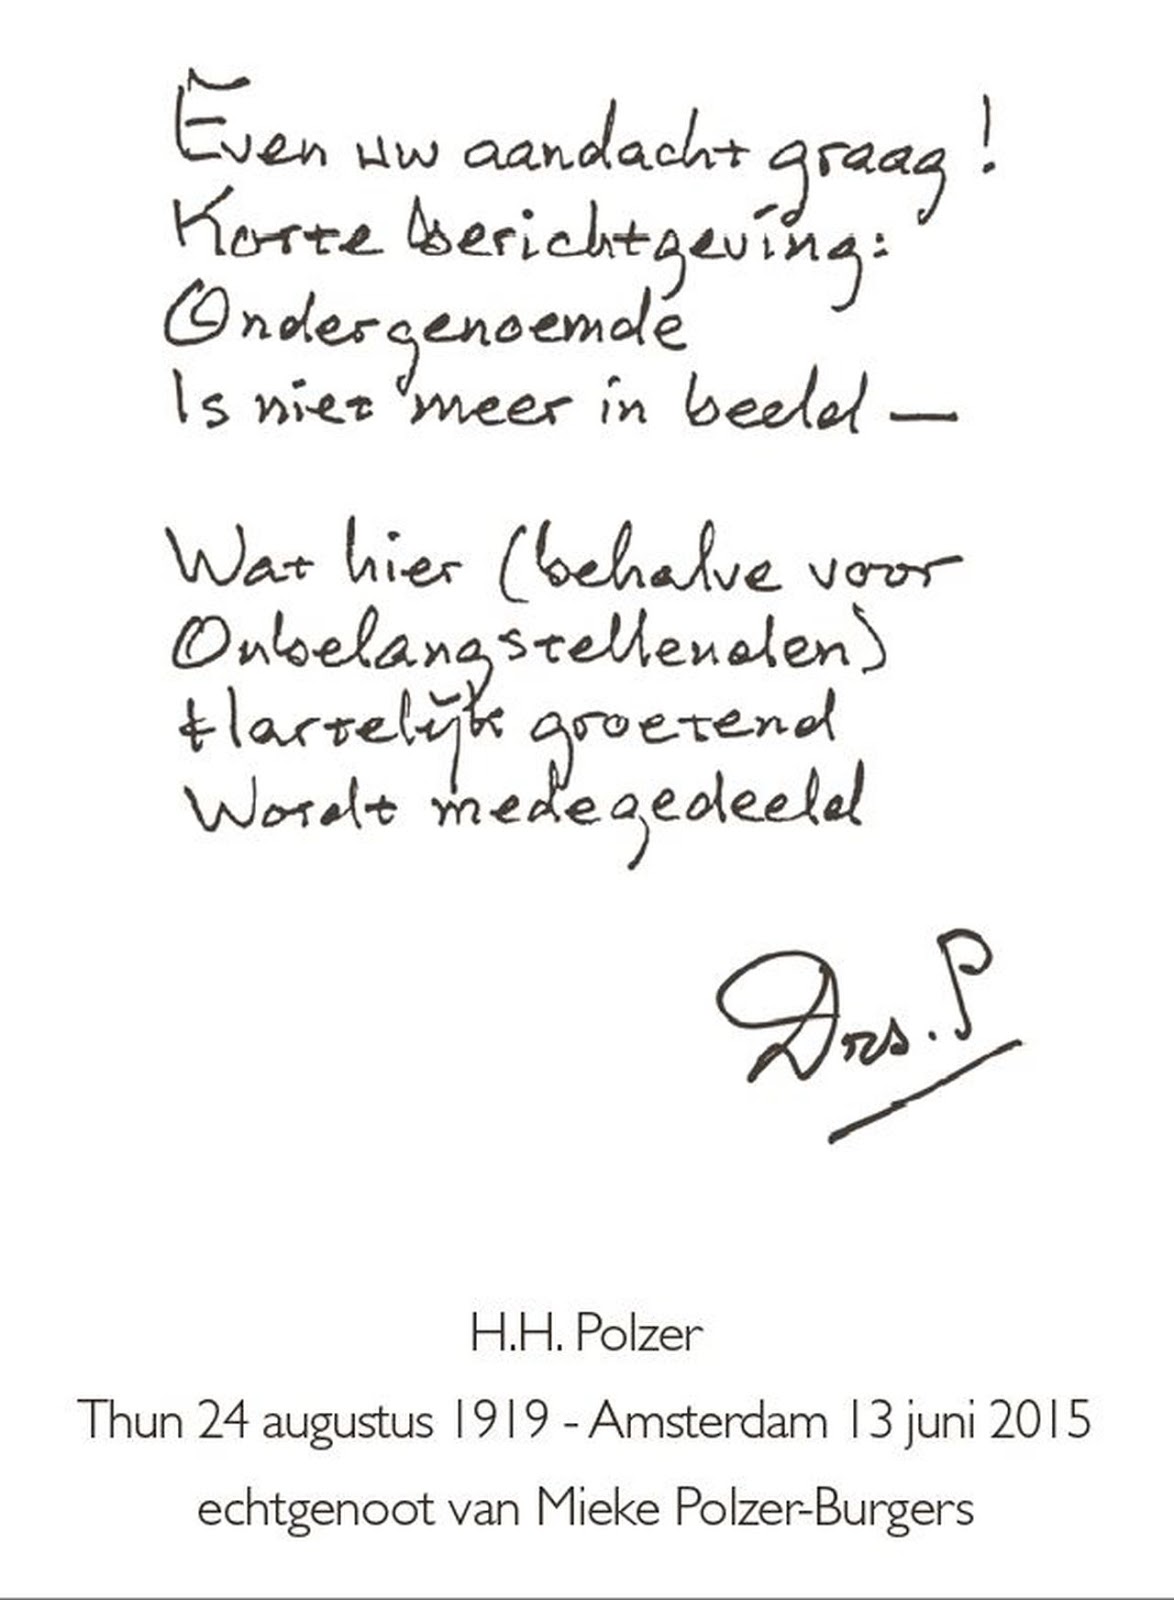 Even uw aandacht graag!
Korte berichtgeving:
Ondergenoemde
Is niet meer in beeld —
Wat hier (behalve voor
Onbelangstellenden)
Hartelijk groetend
Wordt medegedeeld
Drs. P
H.H. Polzer
Thun 24 augustus 1919 - Amsterdam 13 juni 2015
echtgenoot van Mieke Polzer-Burgers